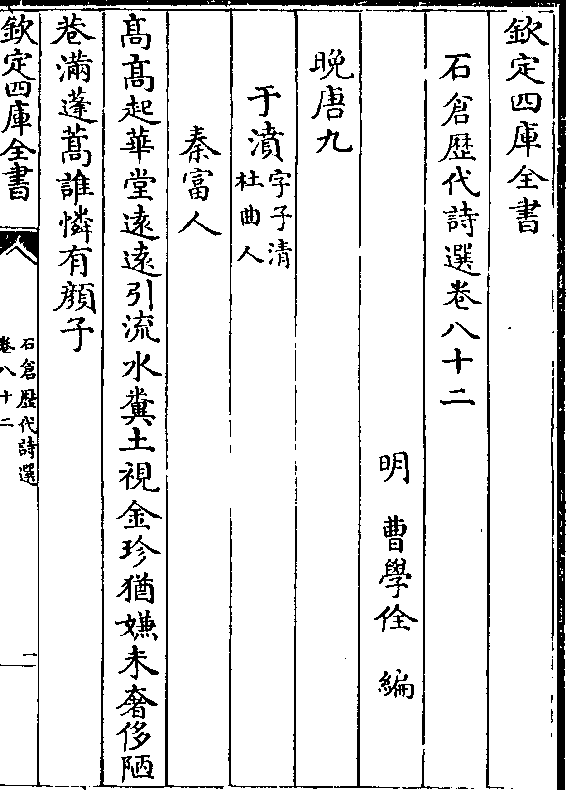 欽定四庫全書
石倉歴代詩選卷八十二
明 曹學佺 編
晚唐九
于濆字子清
杜曲人
秦富人
髙髙起華堂逺逺引流水糞土視金珍猶嫌未奢侈陋
巷滿蓬蒿誰憐有顔子
欽定四庫全書
石倉歴代詩選
卷八十二
一